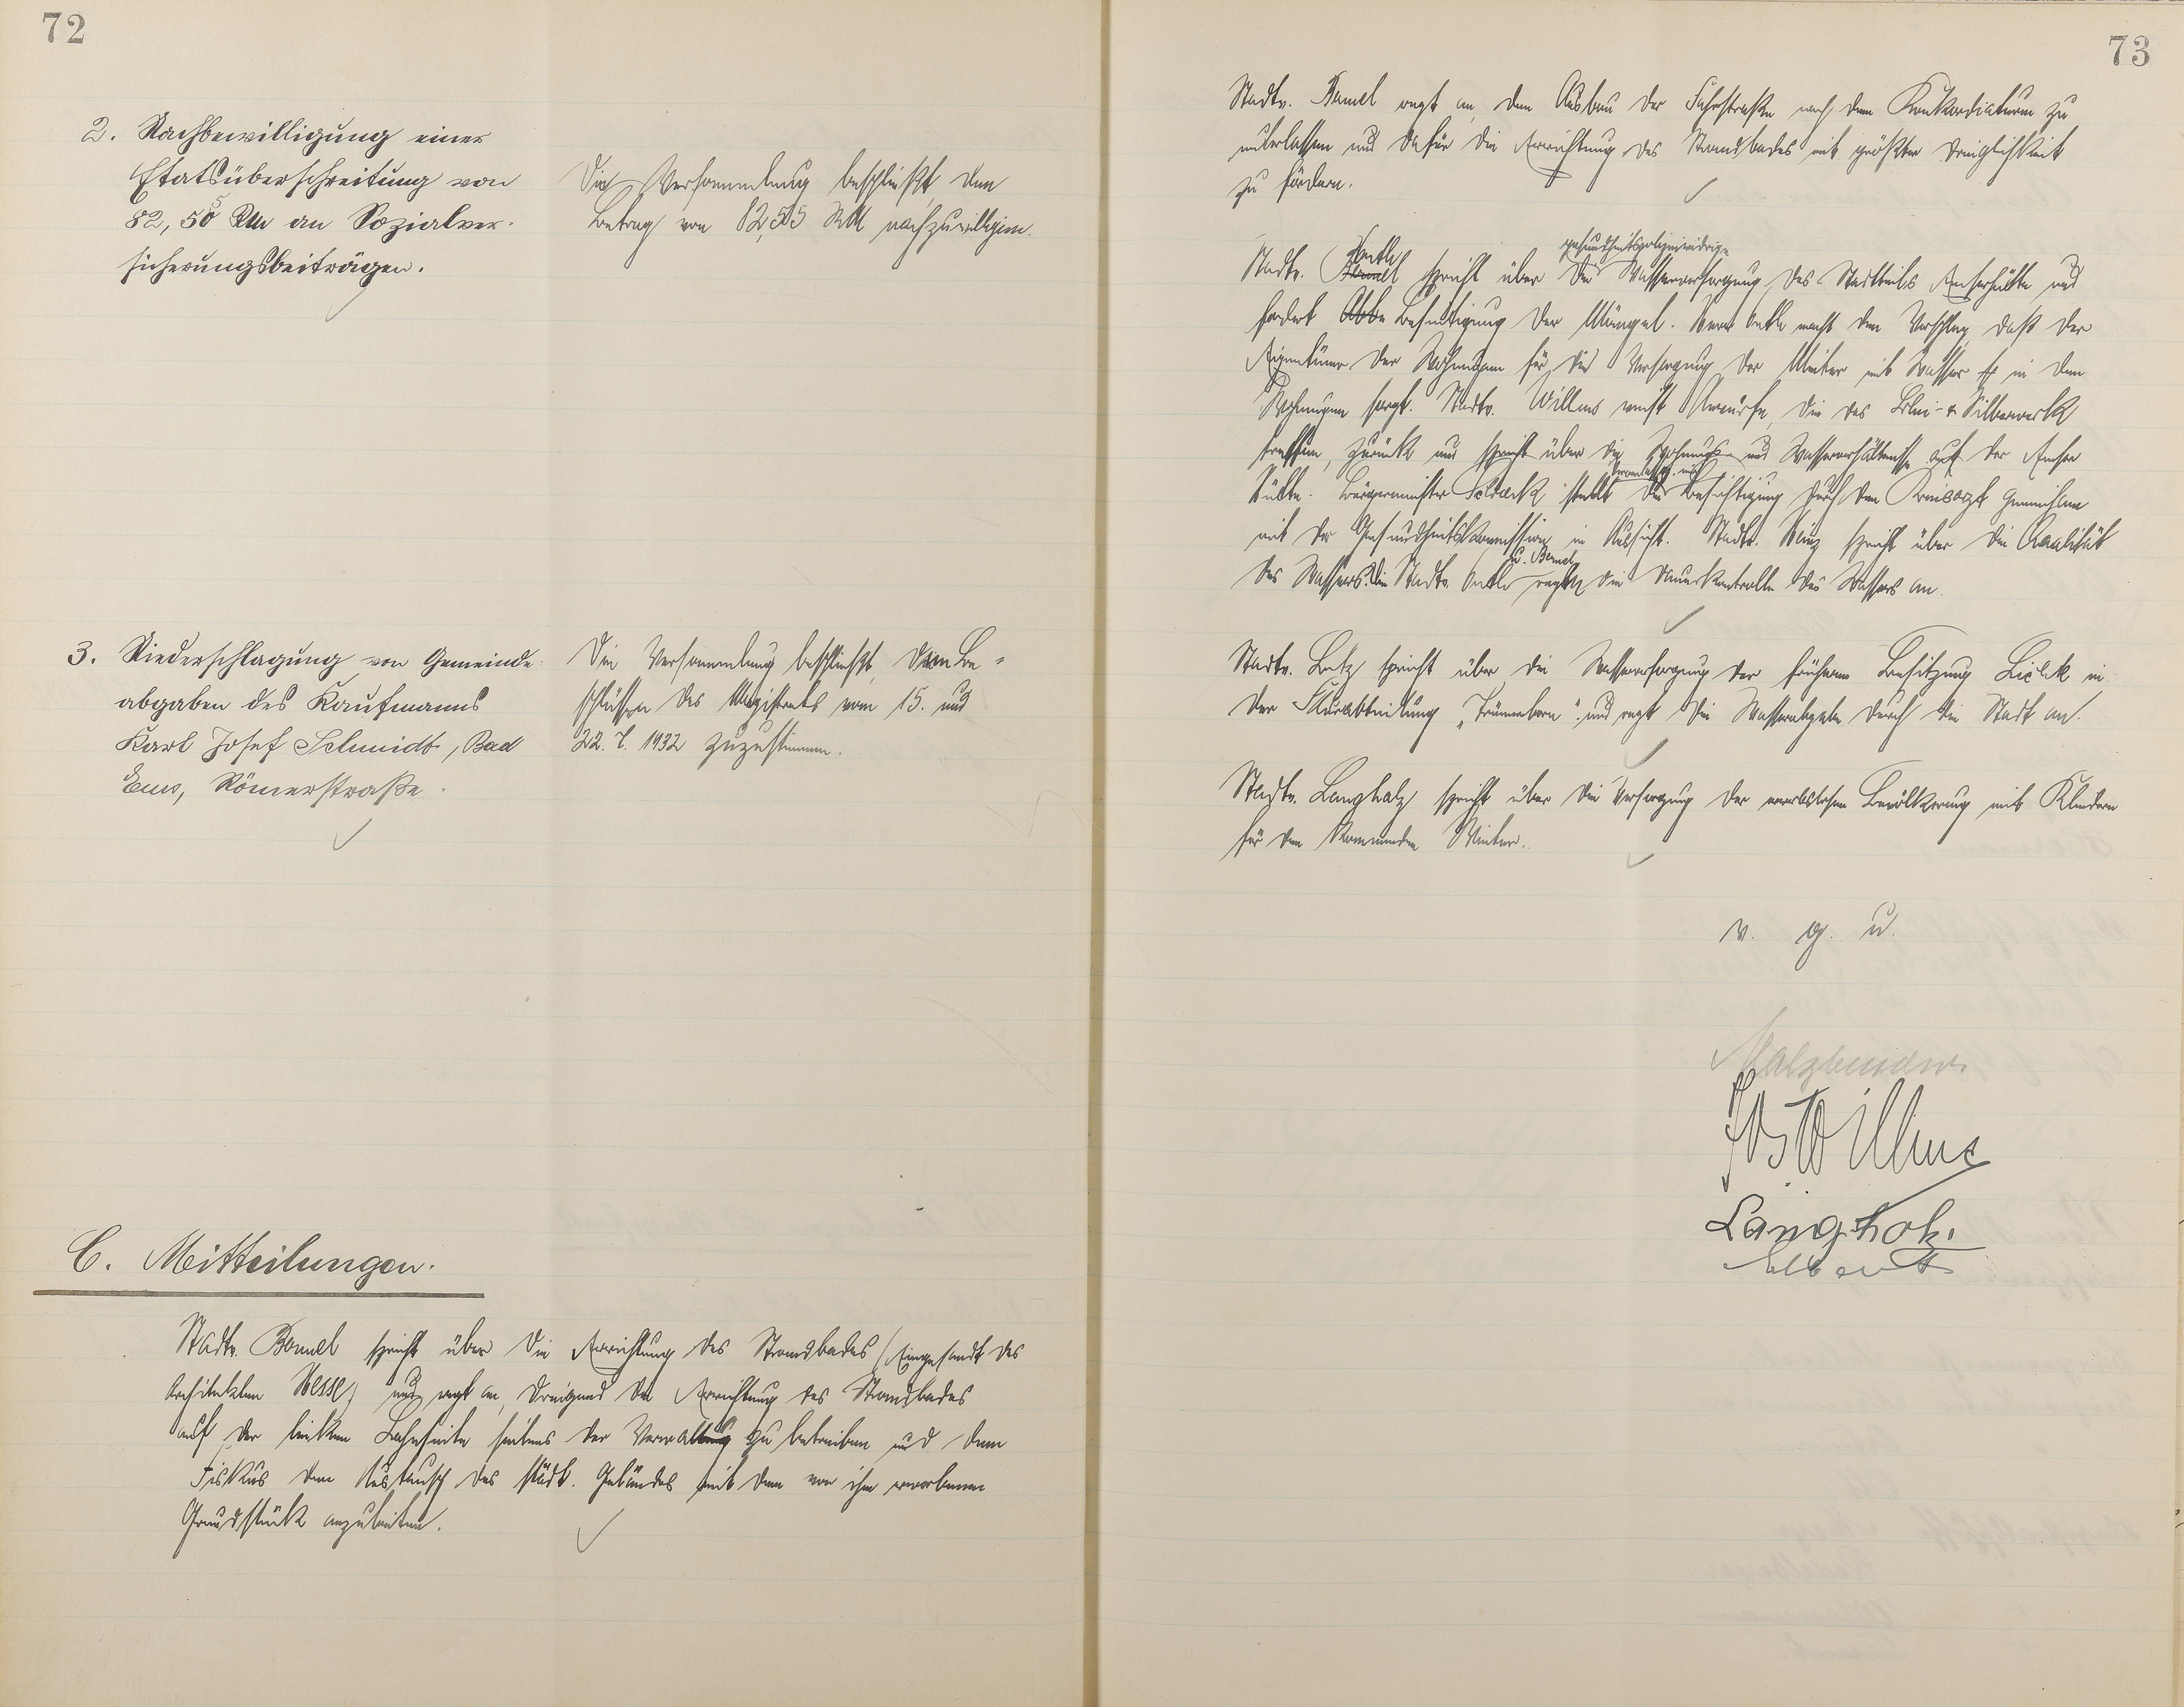 72
2. Nachbewilligung einer
Etatsüberschreitung von
82,55 RM an Sozialver-
sicherungsbeiträgen.
Die Versammlung beschließt, den
Betrag von 82,55 RM nachzuwilligen.
3. Niederschlagung von Gemeinde-
abgaben des Kaufmanns
Karl Josef Schmidt, Bad
Ems, Römerstraße.
Die Versammlung beschließt, den Be-
schlüssen des Magistrats vom 15. und
22. 7. 1932 zuzustimmen.
C. Mitteilungen.
Stadtv. Bamel spricht über die Errichtung des Strandbades (Eingesandt des
Architekten Hesse) und regt an, dringend die Errichtung des Strandbades
auf der linken Lahnseite seitens der Verwaltung zu betreiben und dem
Fiskus den Austausch des städt. Geländes mit dem von ihm erworbenen
Grundstück anzubieten.
73
Stadtv. Bamel regt an, den Ausbau der Fahrstraße nach dem Konkordiaturm zu
unterlassen und dafür die Errichtung des Strandbades mit größter Dringlichkeit
zu fördern.
Stadtv. spricht über die gesundheitspolizeiwidrige Wasserversorgung des Stadtteils Emserhütte und
fordert Beseitigung der Mängel. macht den Vorschlag, daß der
Eigentümer der Wohnungen für die Versorgung der Mieter mit Wasser in den
Wohnungen sorgt. Stadtv. Willms weist Vorwürfe, die das Blei- & Silberwerk
treffen, zurück und spricht über die Wohnungs- und Wasserverhältnisse auf der Emser
Hütte. Bürgermeister Schrack stellt die Besichtigung durch den Kreisarzt gemeinsam
mit der Gesundheitskommission in Aussicht. Stadtv. spricht über die Qualität
des Wassers. Die Stadtv. u. Bamel regen die Dauerkontrolle des Wassers an.
Stadtv. Lotz spricht über die Wasserversorgung der früheren Besitzung in
der Flurabteilung und regt die Wasserabgabe durch die Stadt an.
Stadtv. Langholz spricht über die Versorgung der erwerbslosen Bevölkerung mit Kleidern
für den kommenden Winter.
v. g. u.
Malzbender
Willms
Langholz
Elbert